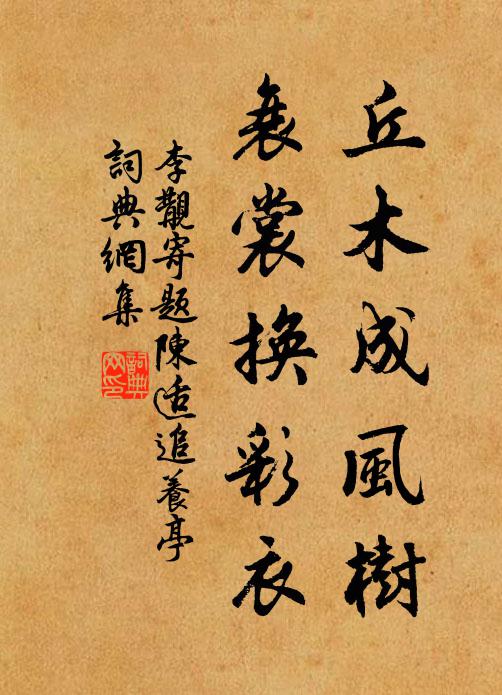 丘木成風樹
衰裳換彩衣
李覯寄題陳适追養亭
詞典網集
詞典網印